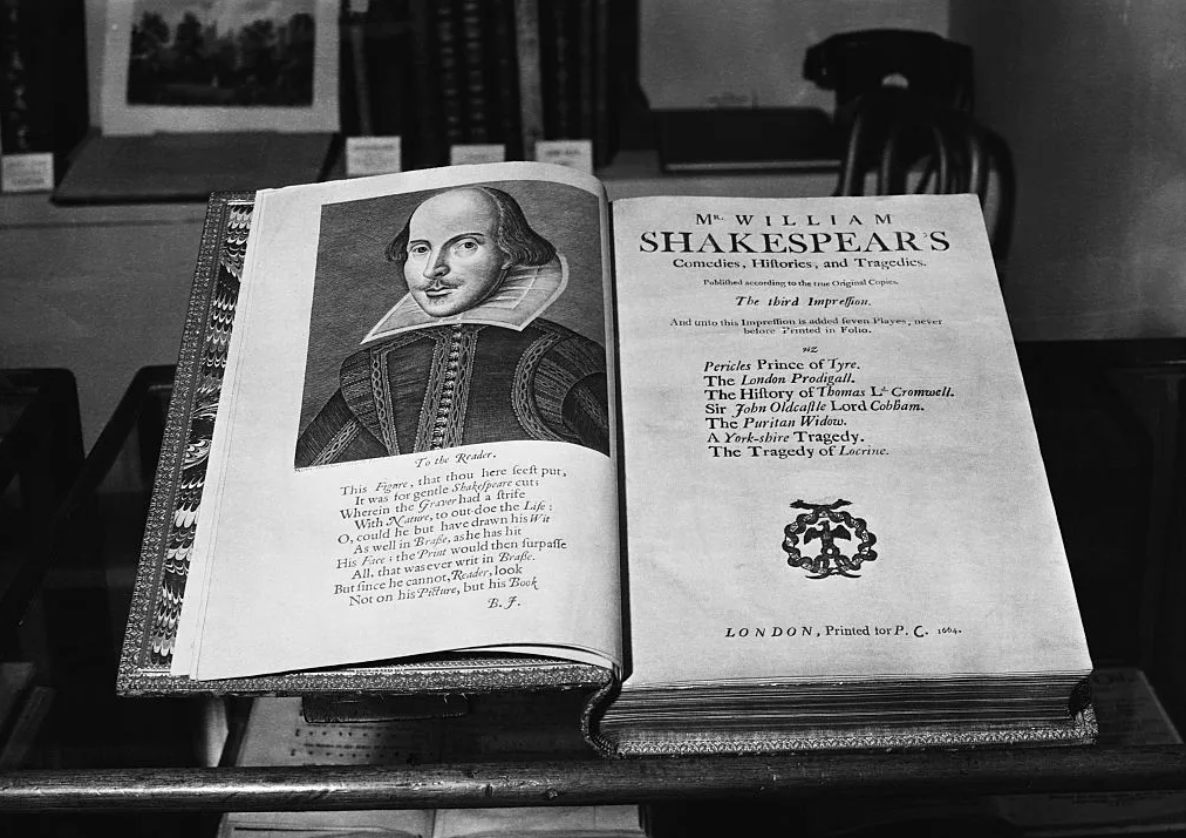 To the Reader.
This Figure, that thou here seeſt put,
It was for gentle Shakeſpeare cut;
Wherein the Graver had a ſtrife
With Nature, to out-doe the Life :
O, could he but have drawn his Wit
As well in Braſſe, as he has hit
His Face ; the Print would then ſurpaſſe
All, that was ever writ in Braſſe.
But ſince he cannot, Reader, look
Not on his Picture, but his Book
B. J.
Mr. WILLIAM
SHAKESPEAR'S
Comedies, Hiſtories, and Tragedies.
Publiſhed according to the true Original Copies.
The third Impreſſion.
And unto this Impreſſion is added ſeven Playes, never
before Printed in Folio.
viz
Pericles Prince of Tyre.
The London Prodigall.
The Hiſtory of Thomas Ld. Cromwell.
Sir John Oldcaſtle Lord Cobham.
The Puritan Widow.
A York-shire Tragedy.
The Tragedy of Locrine.
LONDON, Printed for P. C. 1664.